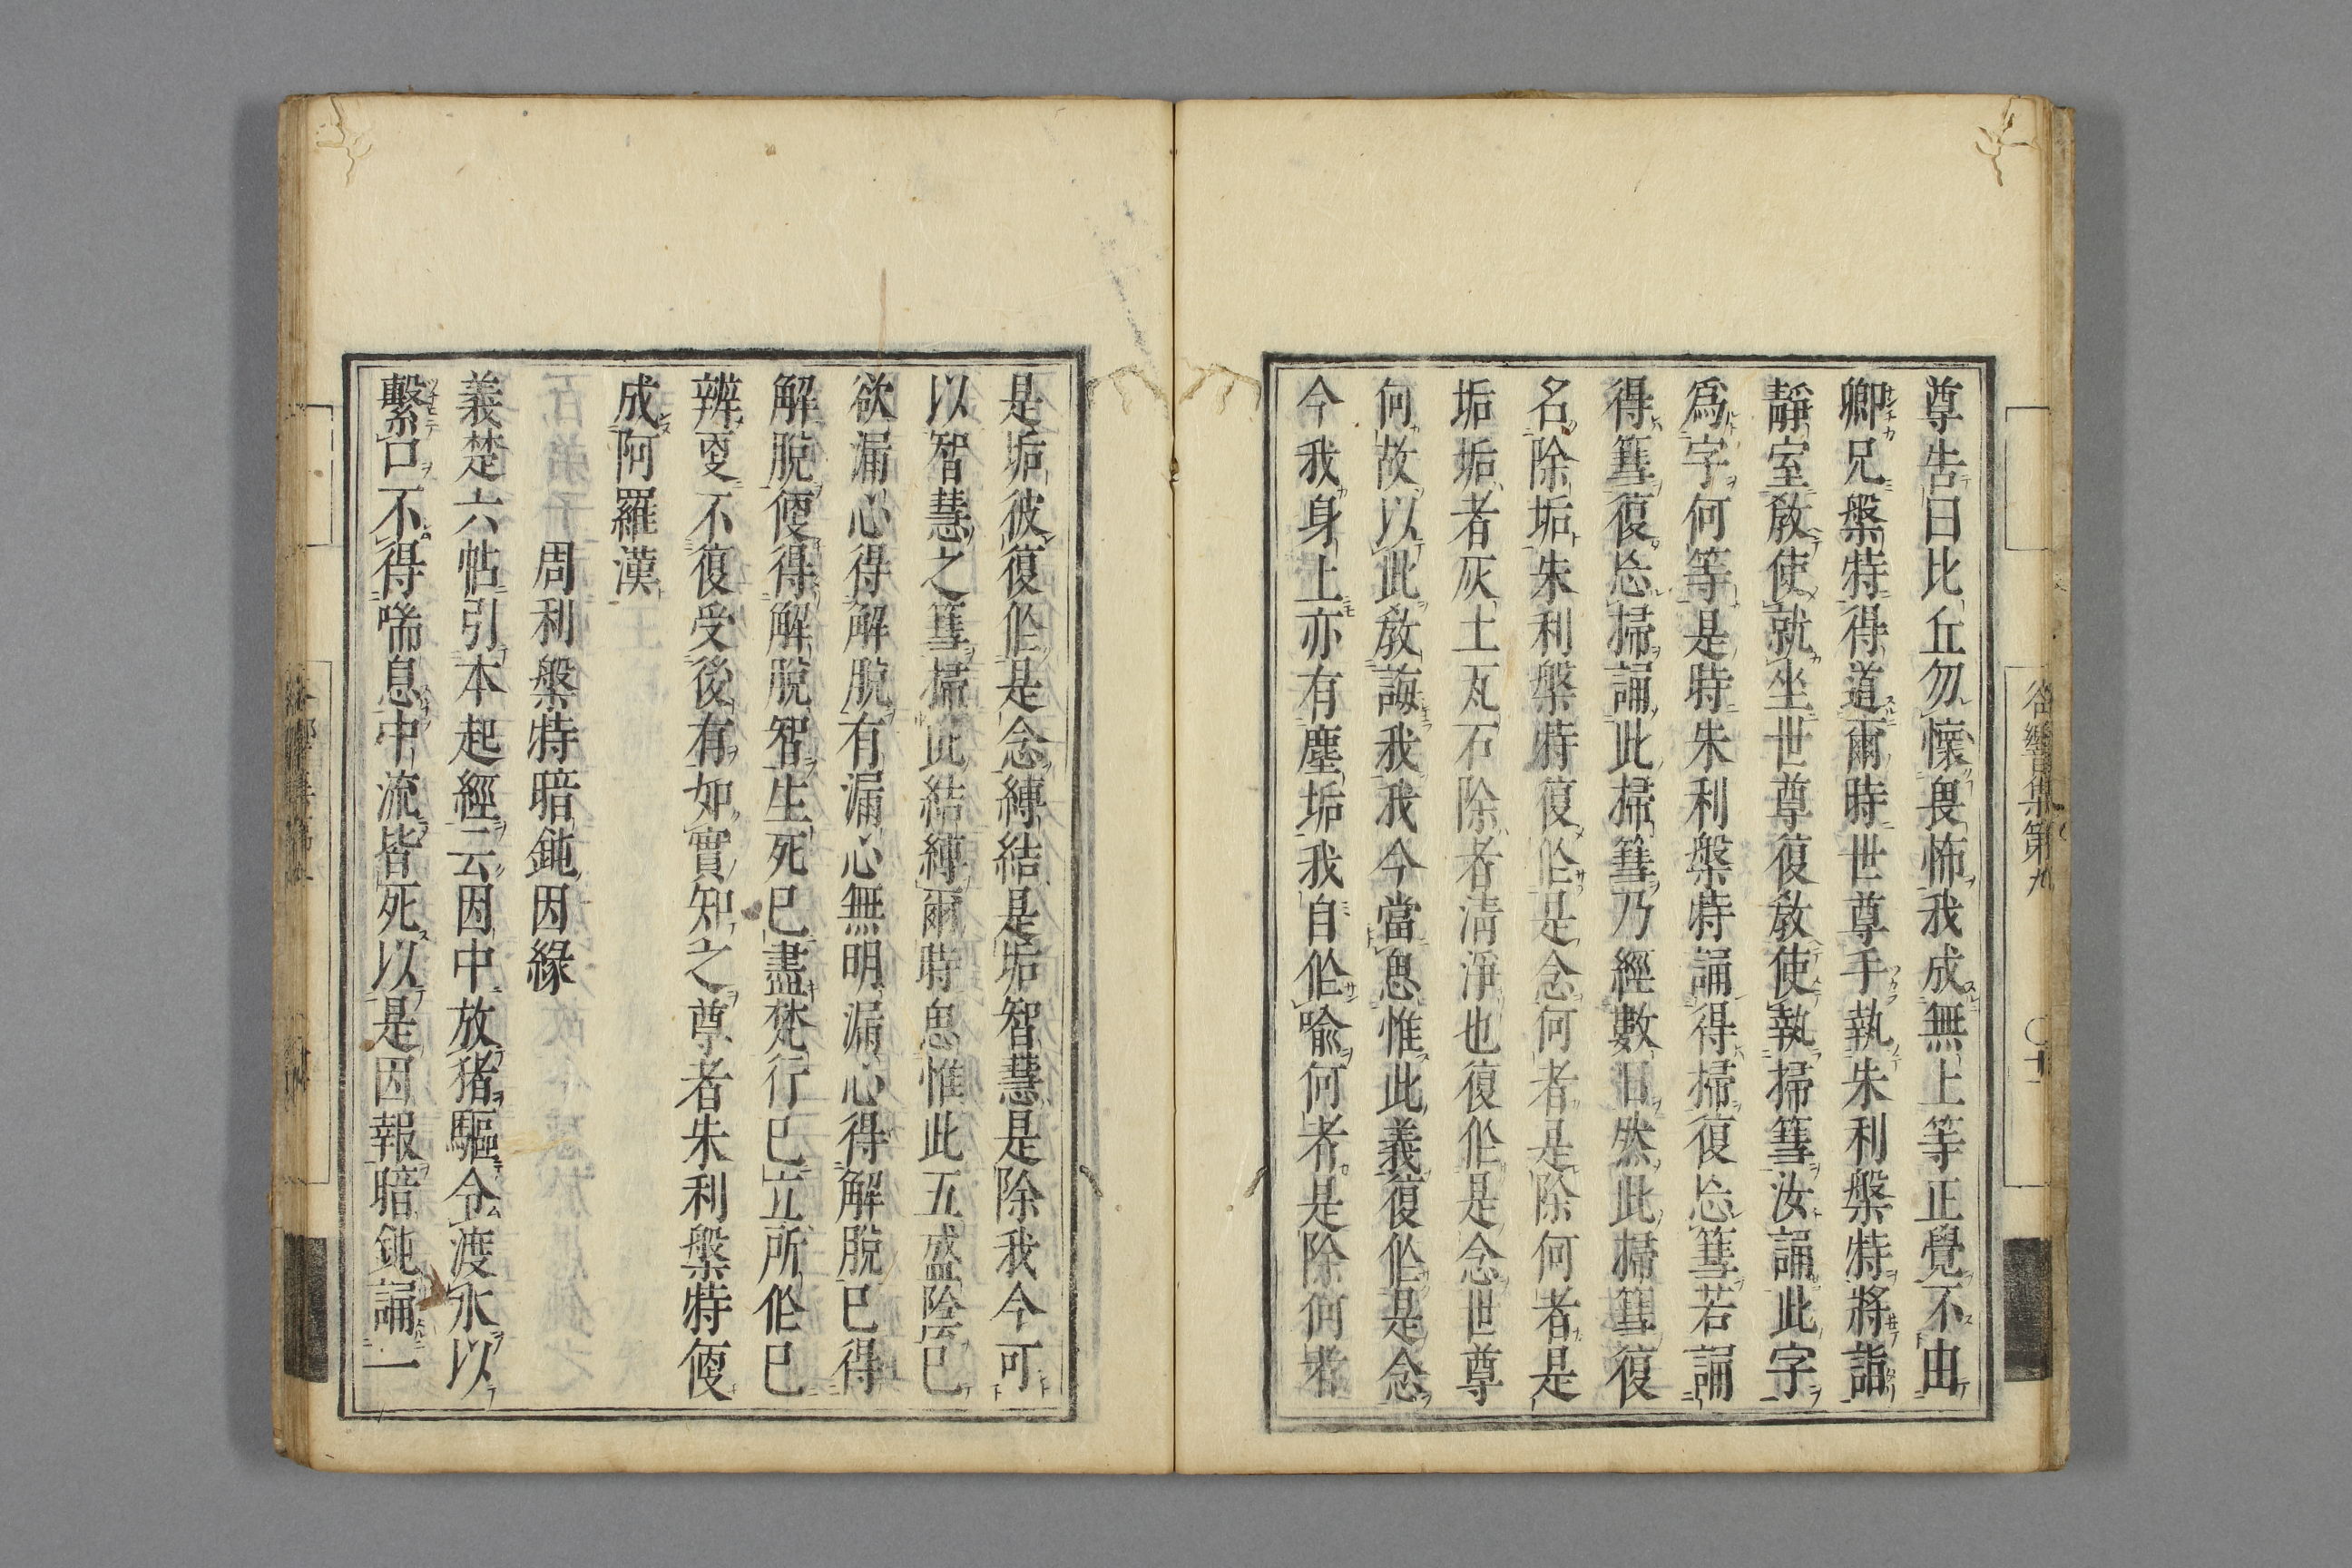 尊告曰比丘勿懷畏怖我成無上等正覺不由
卿兄槃特得道爾時世尊手執朱利槃特將詣
靜室敎使就坐世尊復敎使執掃篲汝誦此字
爲字何等是時朱利槃特誦得掃復忩篲若誦
得篲復忩掃誦此掃篲乃經數日然此掃篲復
名除垢朱利槃特復作是念何者是除何者是
垢垢者灰土瓦石除者淸淨也復作是念世尊
何故以此敎誨我我今當思惟此義復作是念
今我身上亦有塵垢我自作喩何者是除何者
是垢彼復作是念縛結是垢智慧是除我今可
以智慧之篲掃此結縛爾時思惟此五盛陰云已
欲漏心得解脫有漏心無明漏心得解脫已得
解脫便得解脫智生死已盡梵行已立所作已
辨更不復受後有如實知之尊者朱利槃特便
成阿羅漢
周利槃特暗鈍因緣
義楚六帖引本起經云因中放猪驅令渡水以
繫口不得喘息中流皆死以是因報暗鈍誦一
谷響集第九
〇十一